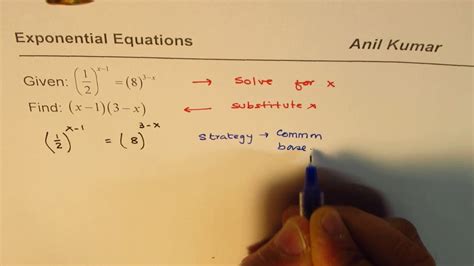 Exponential Equations
Anil Kumar
Given: (1/2)^(x−1) = (8)^(3−x) → Solve for x
Find: (x−1)(3−x) ← substitute x
(1/2)^(x−1) = (8)^(3−x) Strategy → Commm
base.